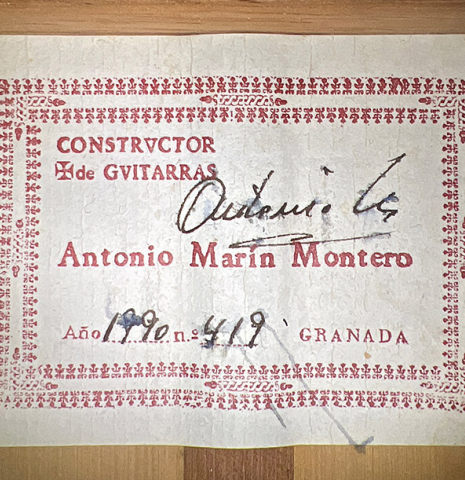 CONSTRVCTOR
✠de GVITARRAS
Antonio
Antonio Marín Montero
Año 1990 n.º 419 GRANADA